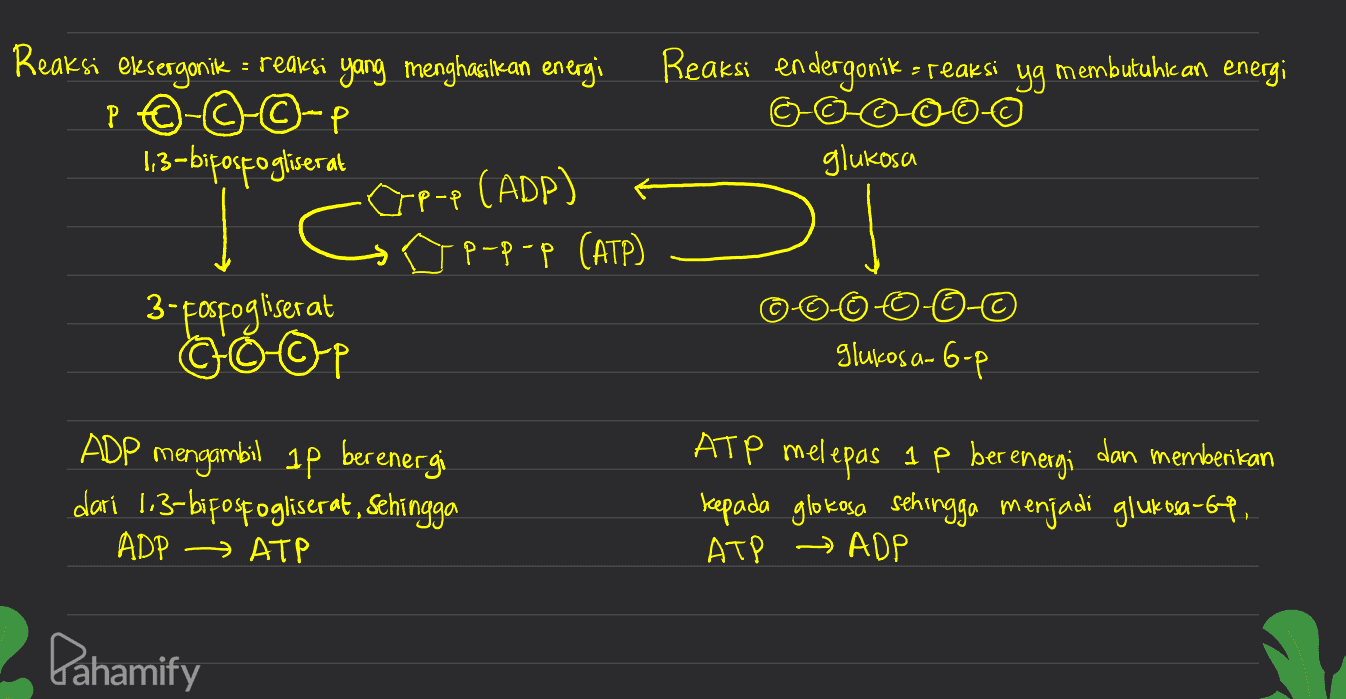 Reaksi eksergonik = reaksi yang menghasilkan energi
P-C-C-C-P
1,3-bifosfogliserat
P-P (ADP)
P-P-P (ATP)
3-fosfogliserat
C-C-C-P
ADP mengambil 1P berenergi
dari 1,3-bifosfogliserat, sehingga
ADP → ATP
Reaksi endergonik = reaksi yg membutuhkan energi
C-C-C-C-C-C
glukosa
C-C-C-C-C-C
glukosa-6-p
ATP melepas 1 P berenergi dan memberikan
kepada glokosa sehingga menjadi glukosa-6P,
ATP → ADP
Pahamify